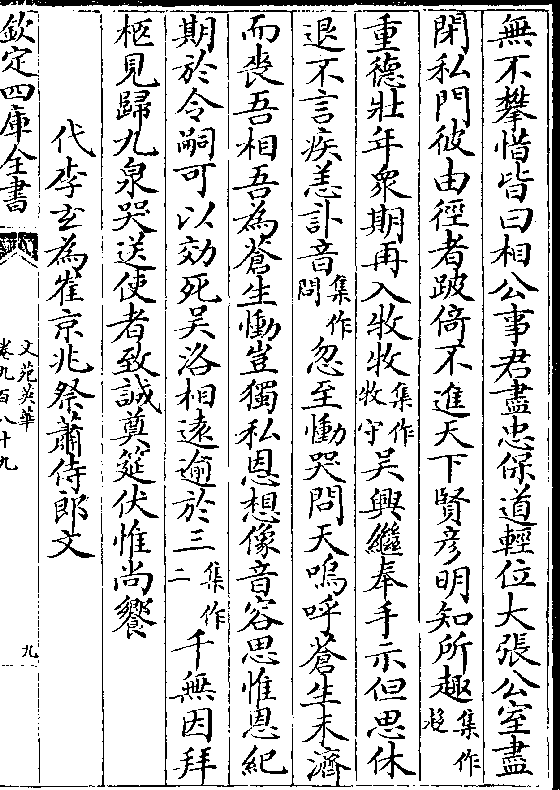 無不攀惜皆曰相公事君盡忠保道輕位大張公室盡
閉私門彼由徑者跛倚不進天下賢彦明知所趣集作趍
重德壯年衆期再入牧牧集作牧守吴興繼奉手示但思休
退不言疾恙訃音集作問忽至慟哭問天嗚呼蒼生未濟
而喪吾相吾為蒼生慟豈獨私恩想像音容思惟恩紀
期於令嗣可以効死吴洛相逺逾於三集作二千無因拜
柩見歸九泉哭送使者致誠奠筵伏惟尚饗
代李玄為崔京兆祭蕭侍郎文
欽定四庫全書
文苑英華
卷九百八十九
九